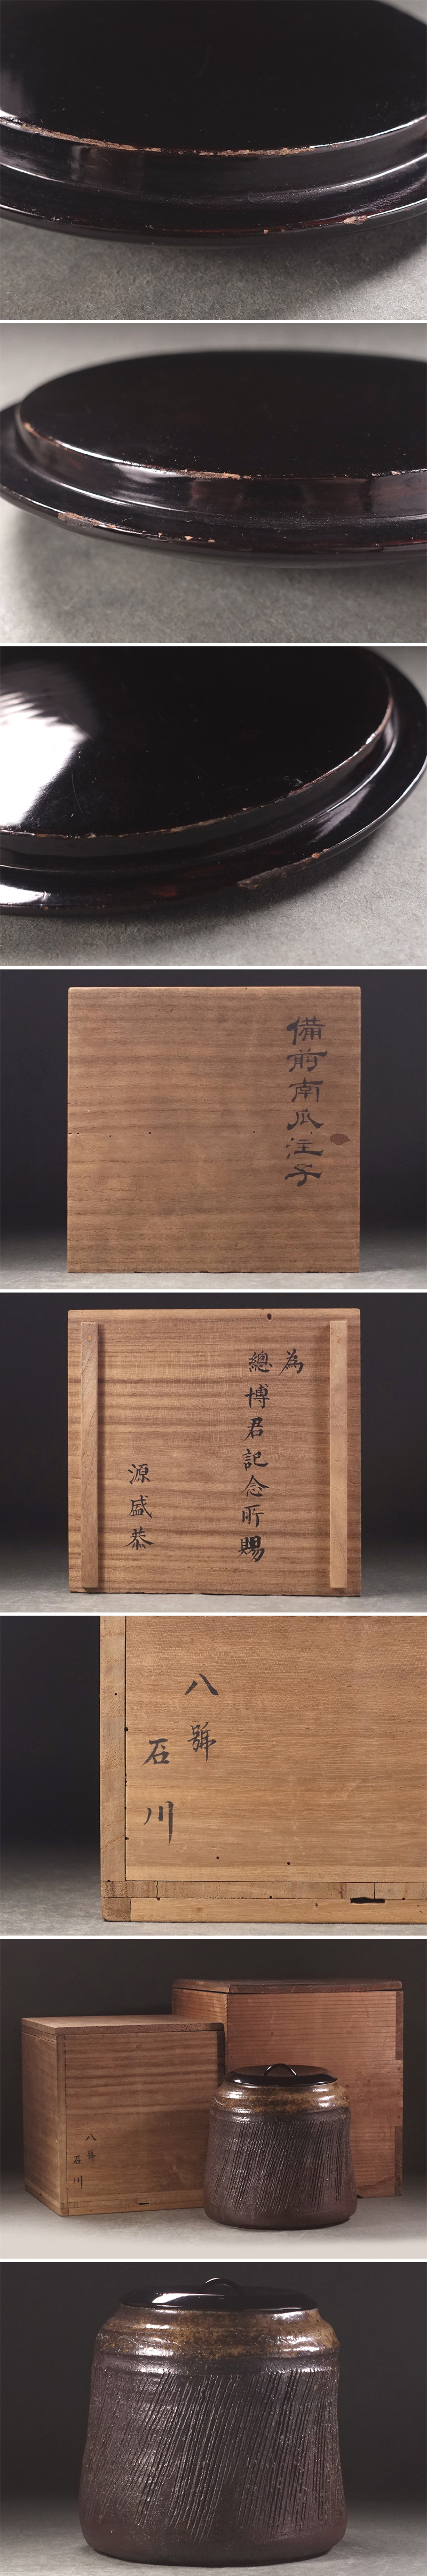 備前南瓜注子
為
總博君記念所賜
源盛恭
八號
石川
八號
石川